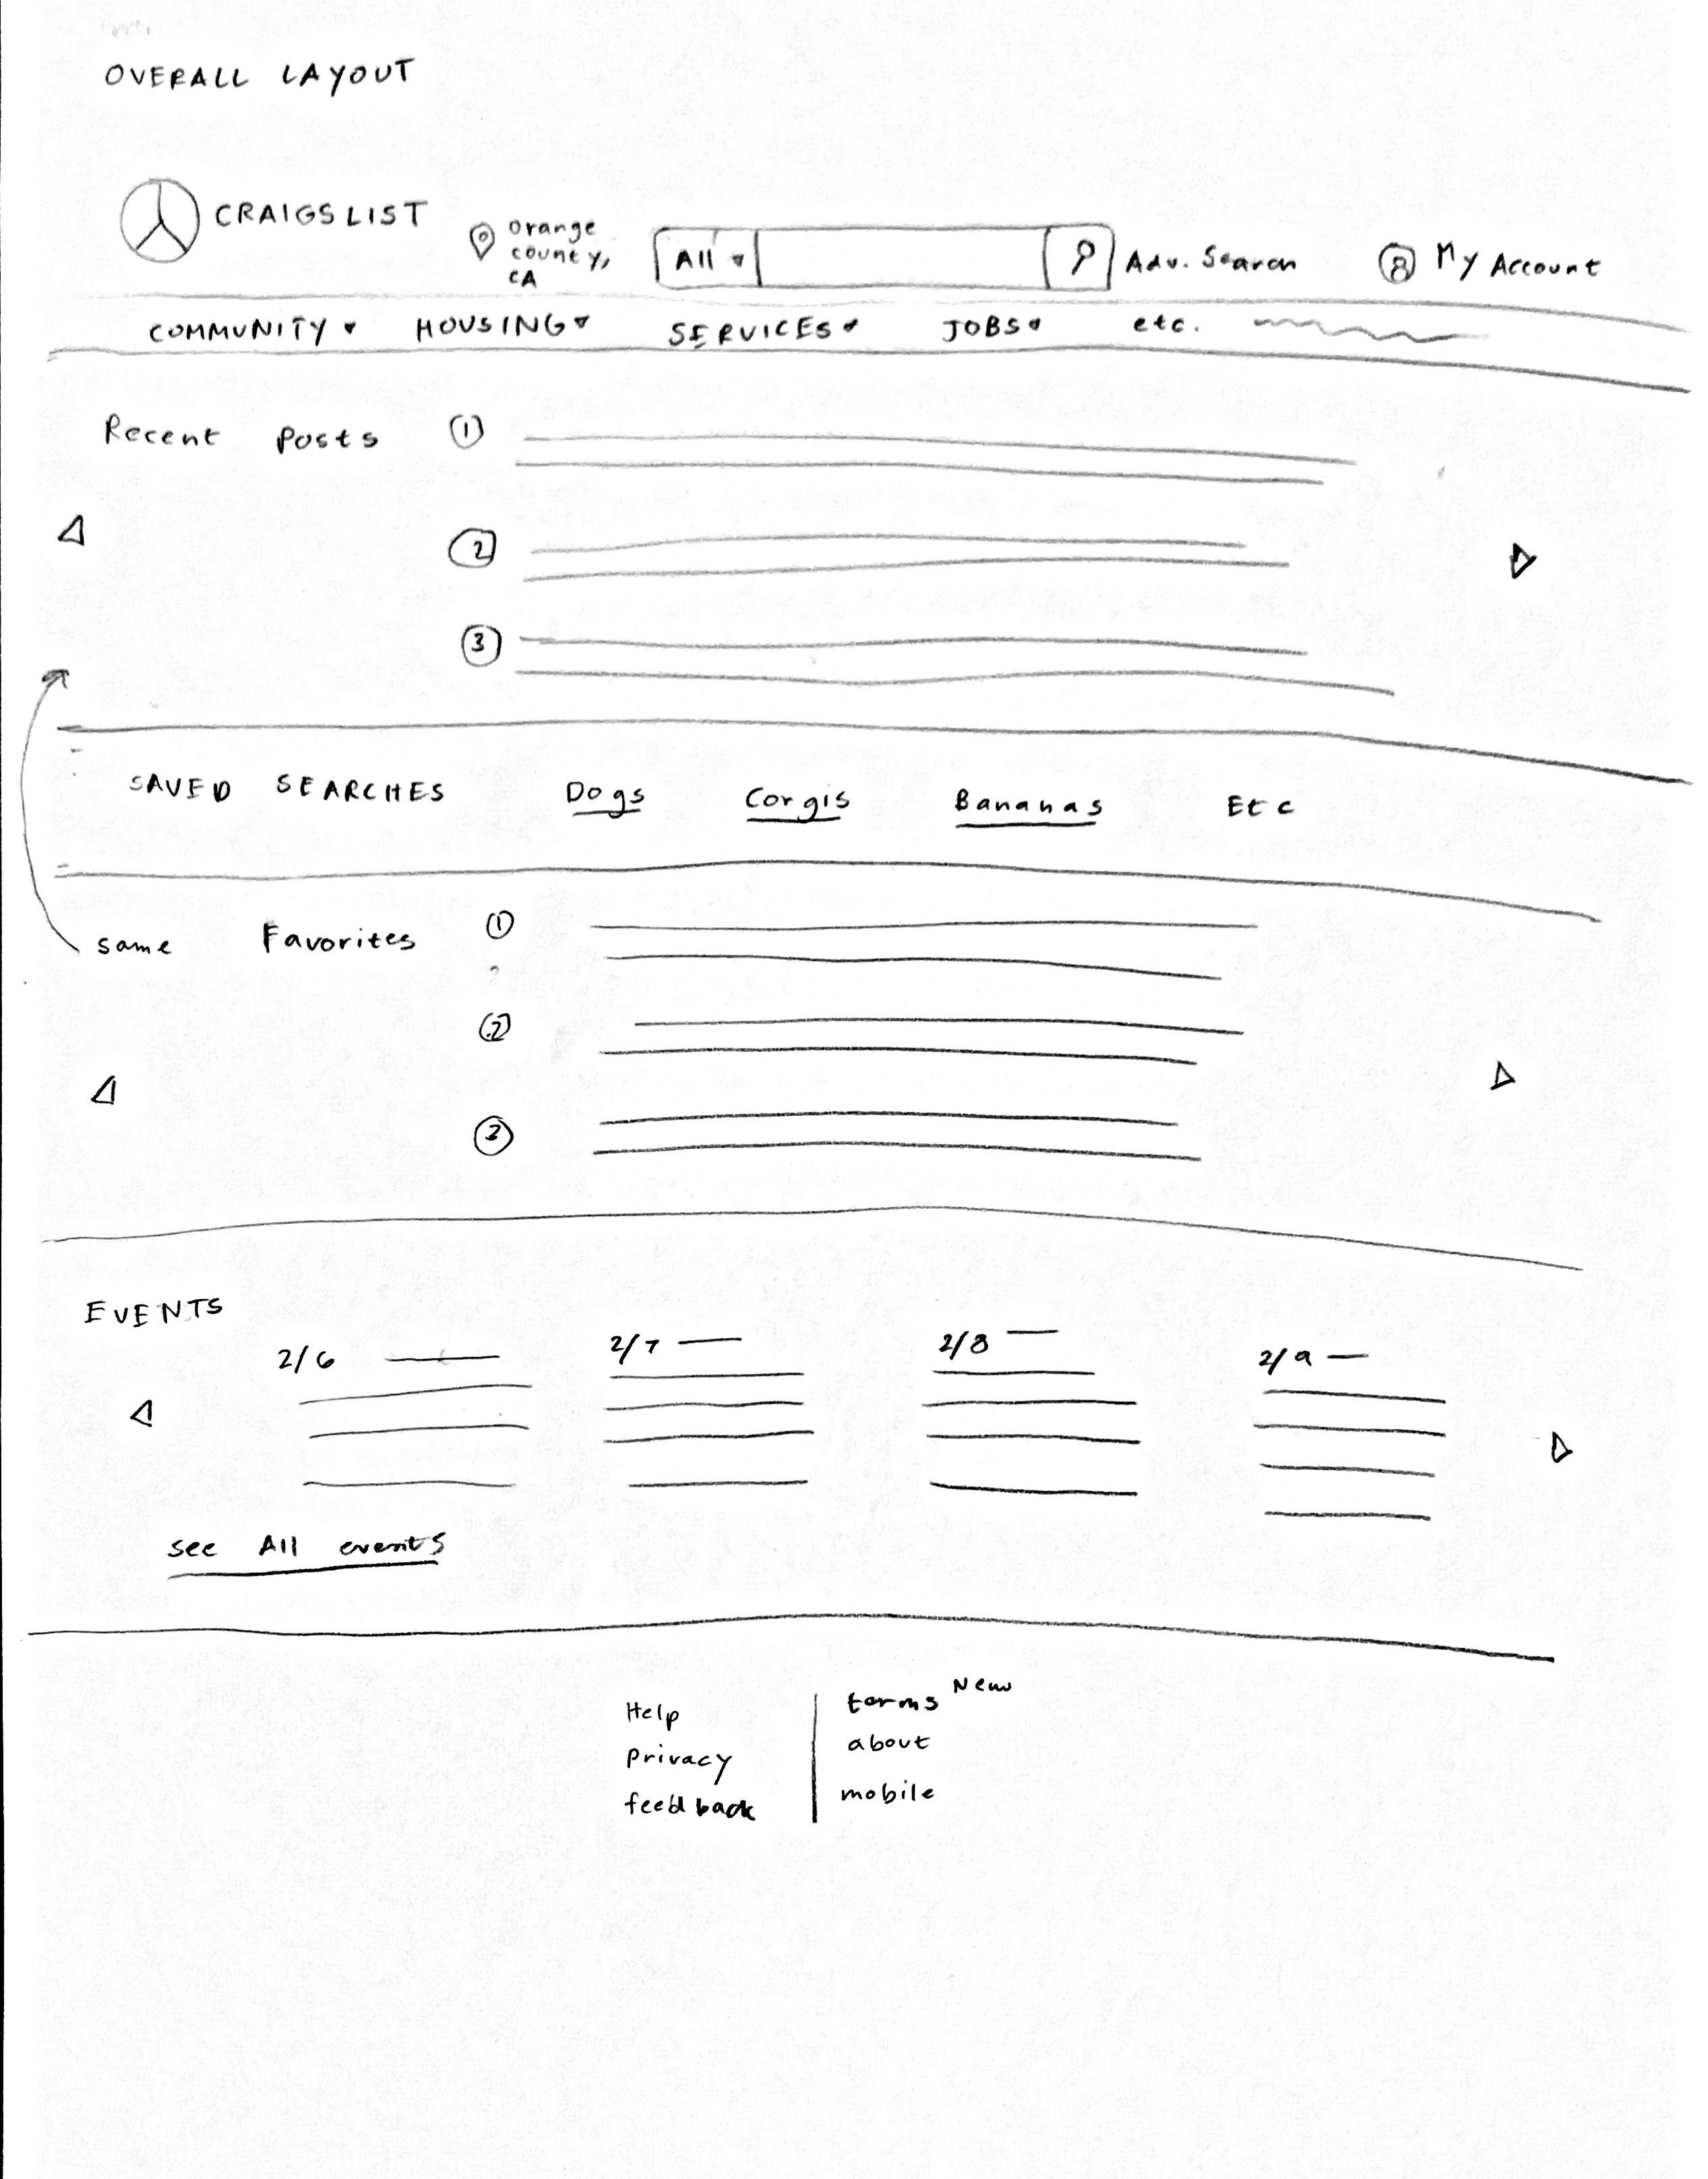 OVERALL LAYOUT
CRAIGSLIST
Orange
county,
CA
All
Adv. Search
My Account
COMMUNITY
HOUSING
SERVICES
JOBS
etc.
Recent Posts
1
2
3
SAVED SEARCHES
Dogs
Corgis
Bananas
Etc
same
Favorites
1
2
3
EVENTS
2/6
2/7
2/8
2/9
see All events
Help
privacy
feedback
terms New
about
mobile